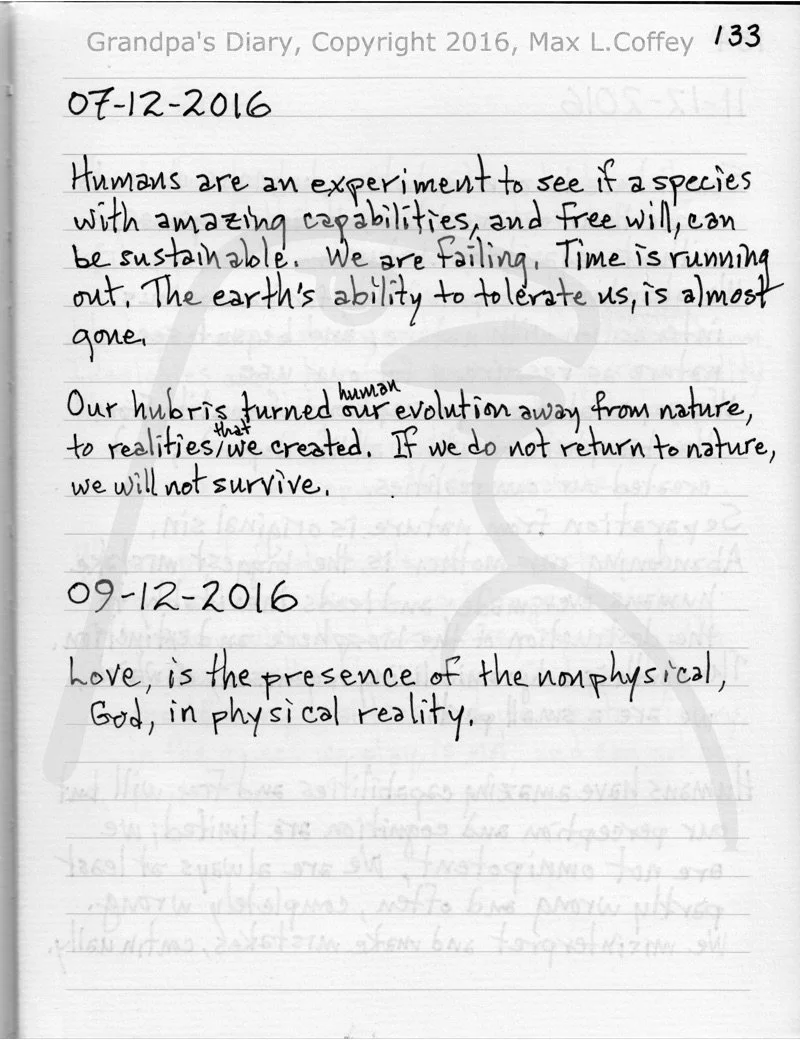 Grandpa's Diary, Copyright 2016, Max L.Coffey 133
07-12-2016
Humans are an experiment to see if a species
with amazing capabilities, and free will, can
be sustainable. We are failing. Time is running
out. The earth's ability to tolerate us, is almost
gone.
human
Our hubris turned our evolution away from nature,
that
to realities/we created. If we do not return to nature,
we will not survive.
09-12-2016
Love, is the presence of the nonphysical,
God, in physical reality.